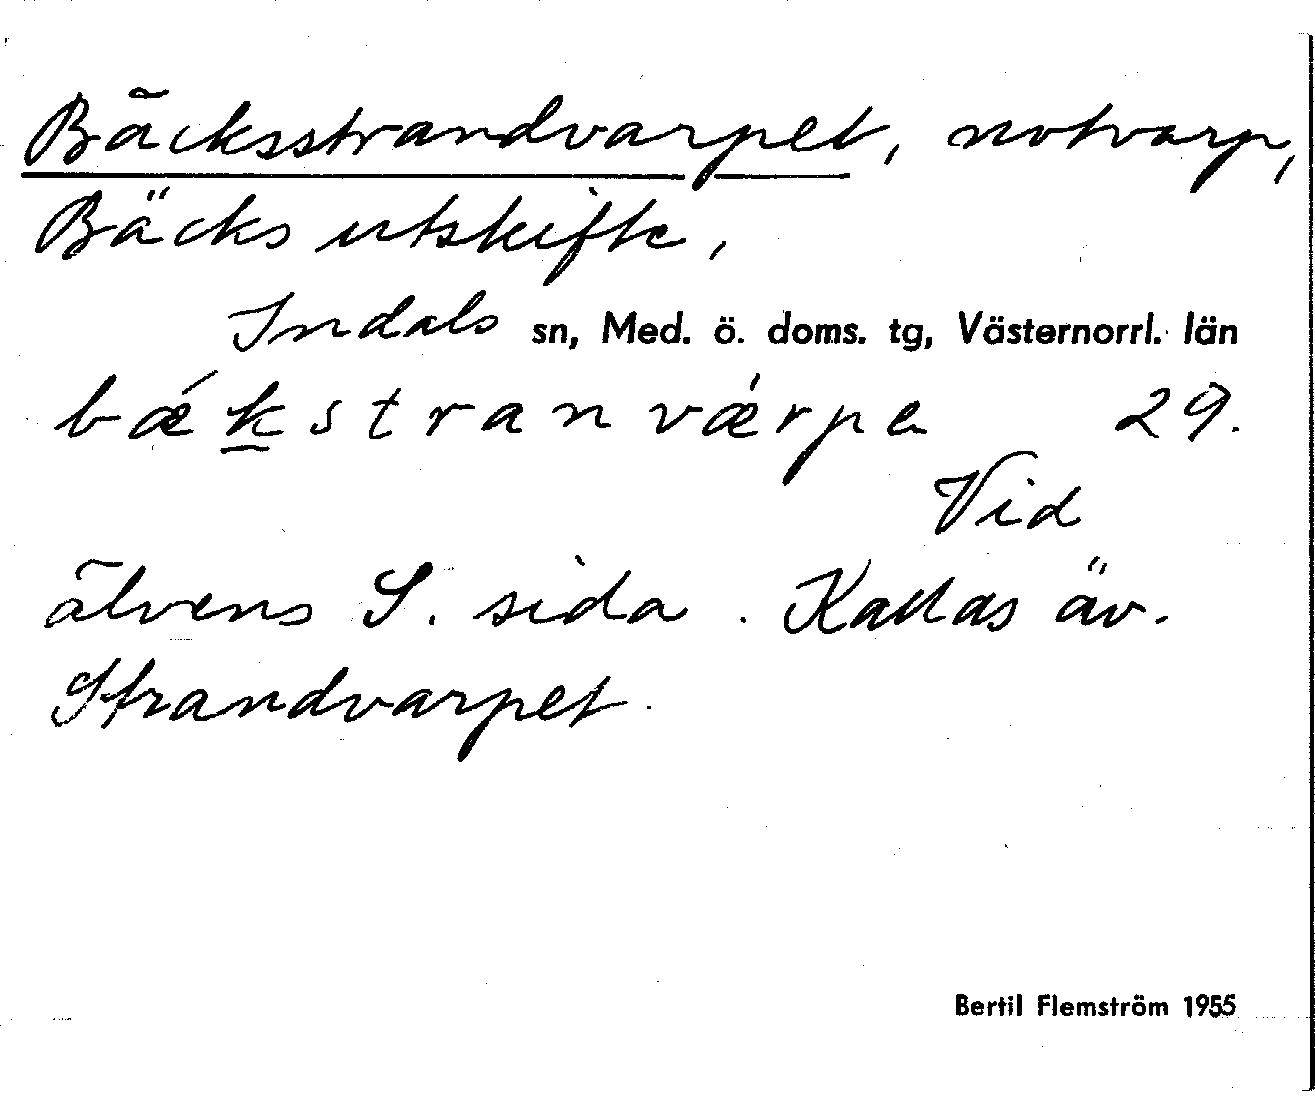 Bäcksstrandvarpet, notvarp,
Bäcks utskifte,
Indals sn, Med. ö. doms. tg, Västernorrl. län
bǽk̲stranvǽrpe 29.
Vid
älvens S. sida. Kallas äv.
Strandvarpet.
Bertil Flemström 1955